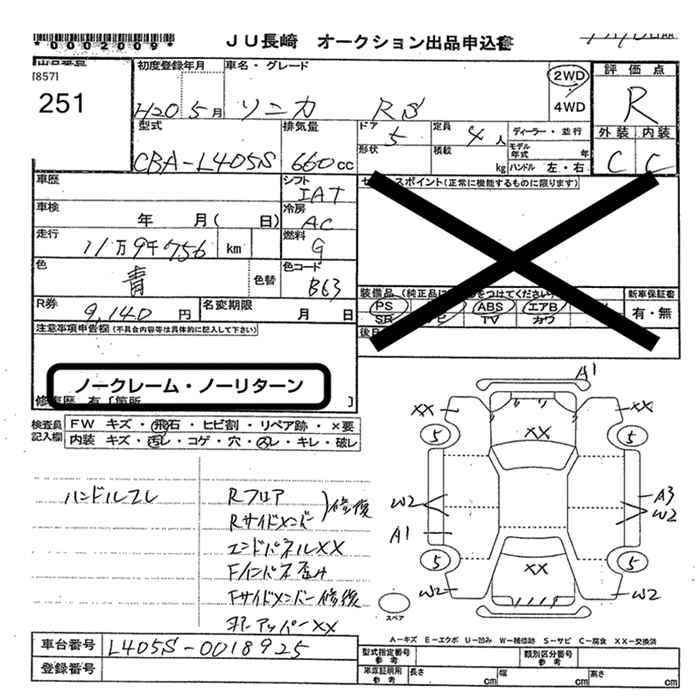 *0002009*
JU長崎 オークション出品申込書
出品番号
[857]
251
初度登録年月
H20 5月
車名・グレード
ソニカ RS
2WD
4WD
評価点
R
外装 内装
C C
型式
CBA-L405S
排気量
660cc
ドア 5
形状
定員 4人
積載 kg
ディーラー・並行
モデル年式 年
ハンドル 左・右
車歴
シフト
IAT
セールスポイント(正常に機能するものに限ります)
車検
年 月( 日)
冷房
AC
走行
11万9千756 km
燃料
G
色
青
色替
色コード
B63
装備品
PS
ABS
エアB
SR
TV
カワ
新車保証書
有・無
R券
9,140円
名変期限
月 日
注意事項申告欄(不具合内容等は具体的に記入して下さい)
ノークレーム・ノーリターン
修復歴 有 [箇所 ]
検査員記入欄
FW キズ・飛石・ヒビ割・リペア跡・×要
内装 キズ・汚レ・コゲ・穴・スレ・キレ・破レ
ハンドルスレ
Rフロア
Rサイドメンバー
修復
エンドパネルXX
Fインパネ歪み
Fサイドメンバー修復
アッパーXX
A1
XX
XX
XX
5
5
W2
A3
W2
A1
5
5
XX
W2
W2
スペア
A-キズ E-エクボ U-凹み W-補修跡 S-サビ C-腐食 XX-交換済
車台番号
L405S-0018925
登録番号
型式指定番号
参考
類別区分番号
参考
車庫証明用
参考
長さ cm
幅 cm
高さ cm